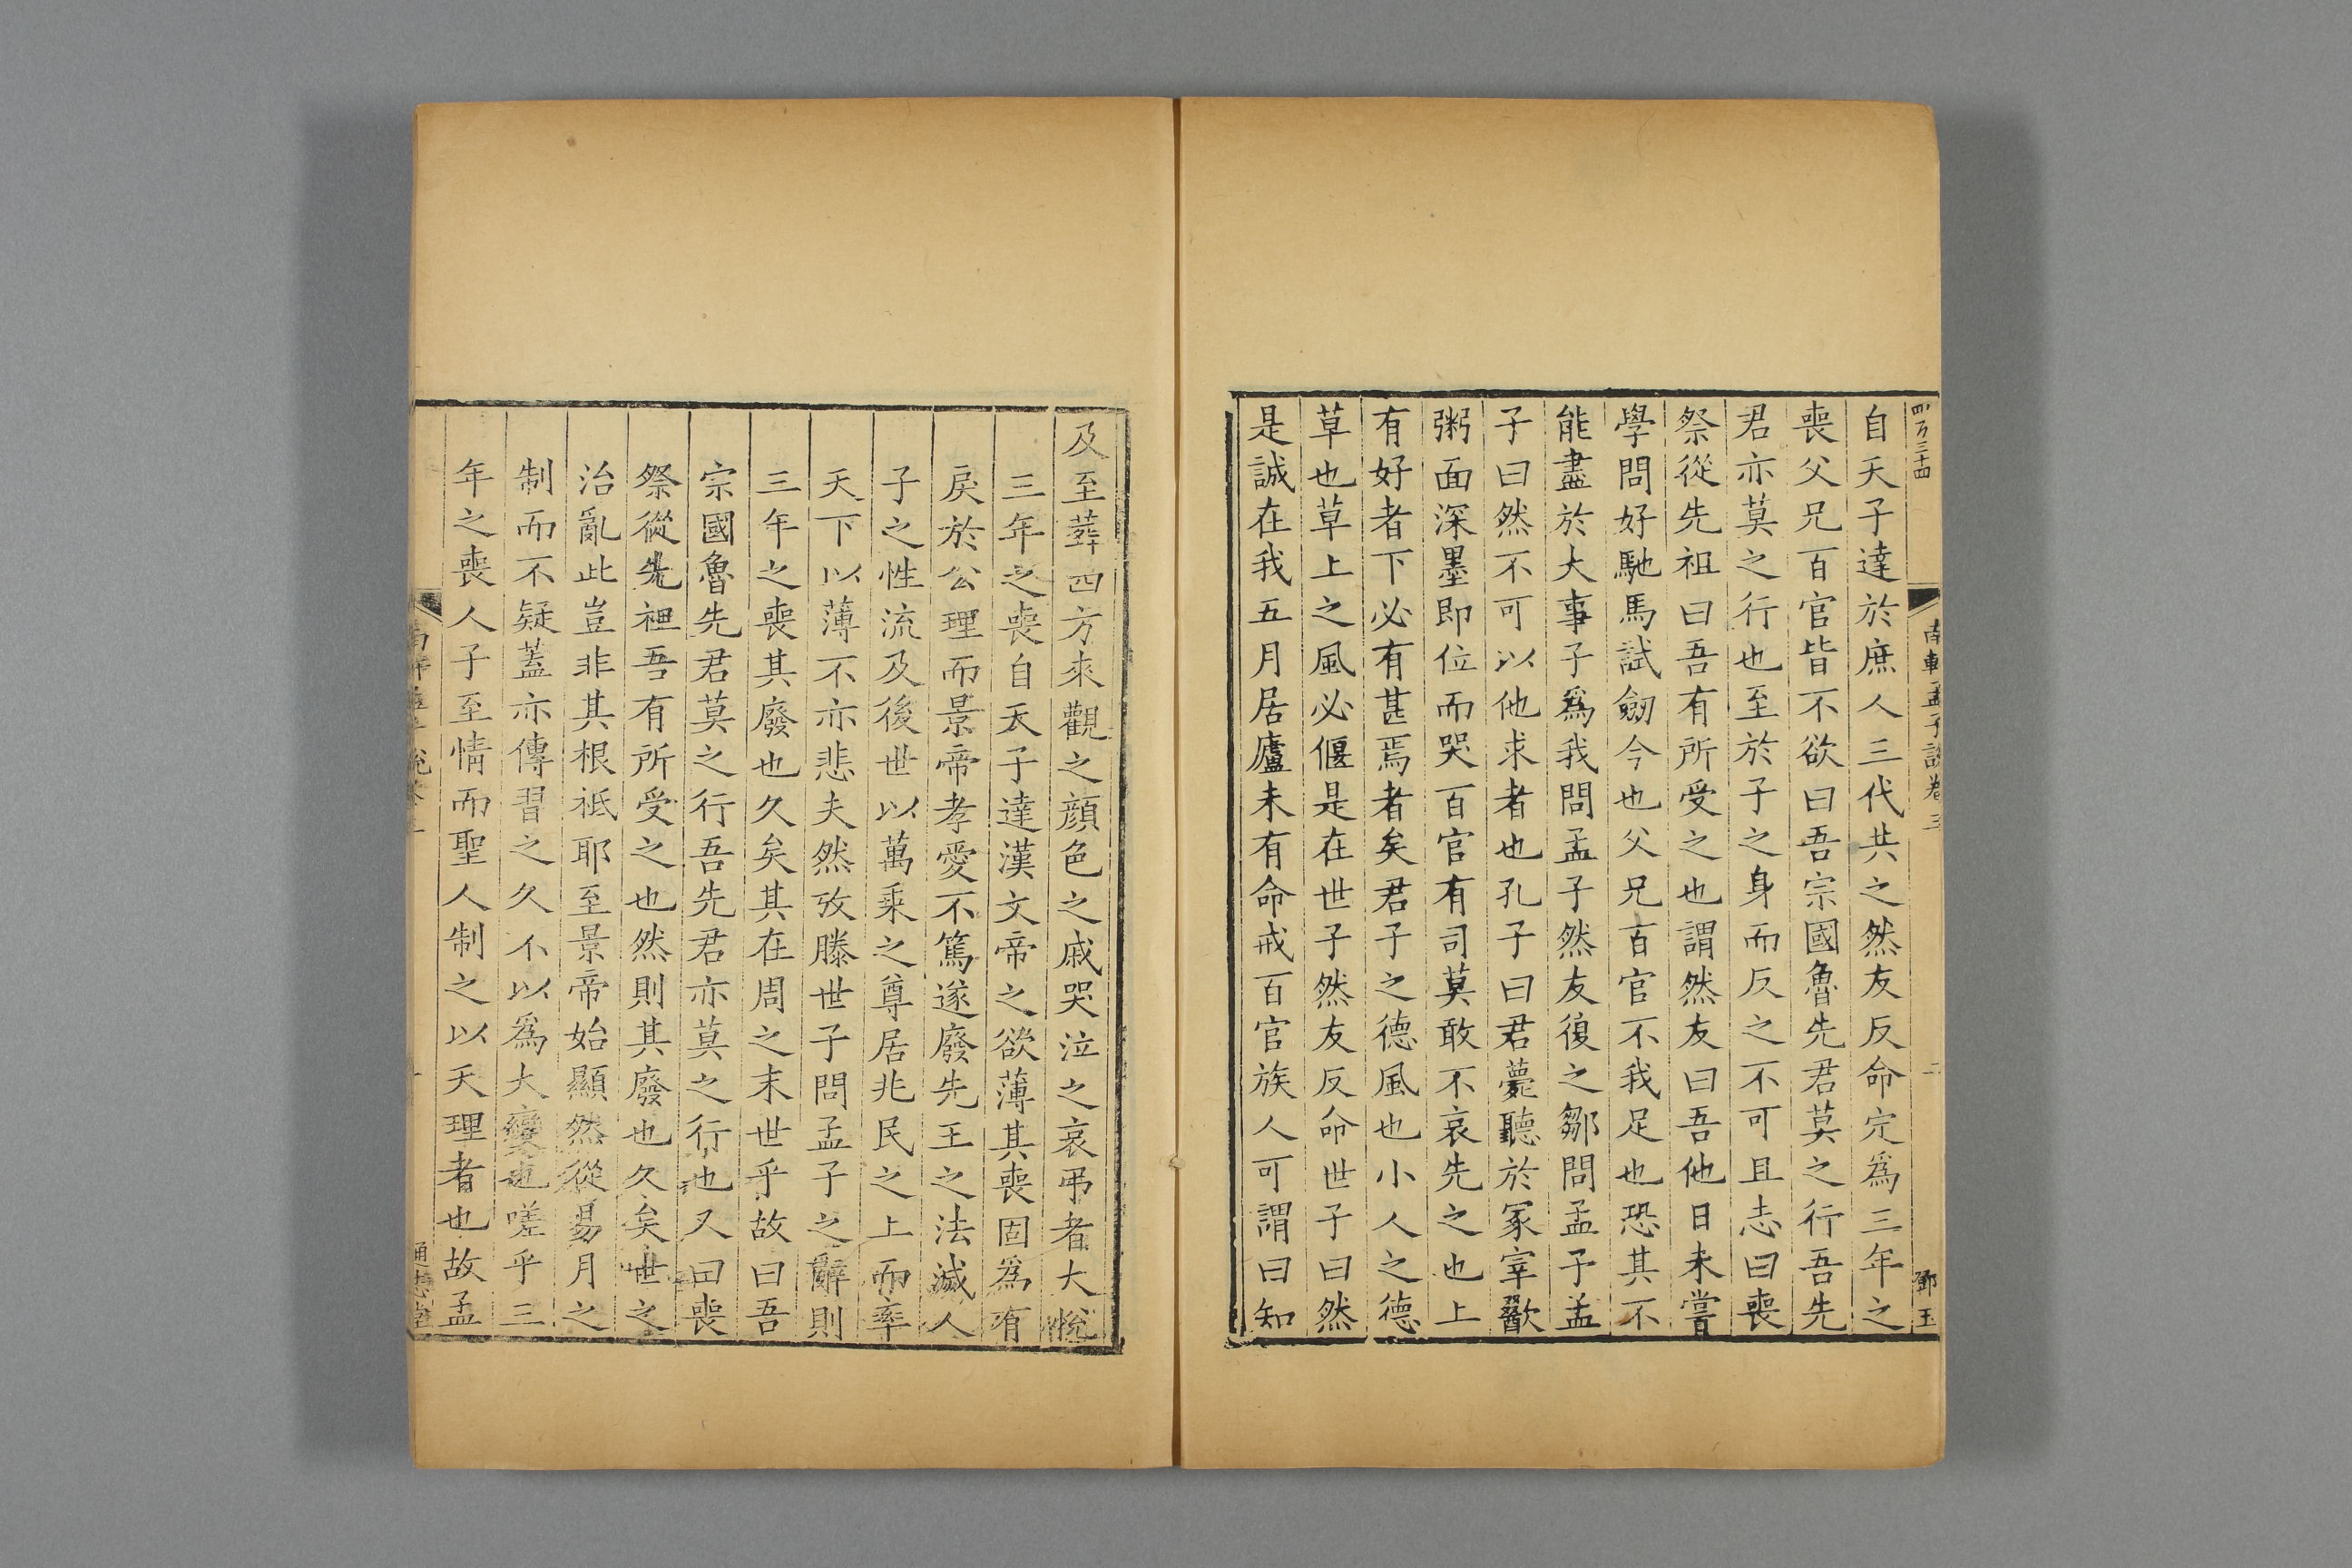 四百三十四
南軒孟子說卷三
二
鄧玉
自天子達於庶人三代共之然友反命定爲三年之
喪父兄百官皆不欲曰吾宗國魯先君莫之行吾先
君亦莫之行也至於子之身而反之不可且志曰喪
祭從先祖曰吾有所受之也謂然友曰吾他日未嘗
學問好馳馬試劒今也父兄百官不我足也恐其不
能盡於大事子爲我問孟子然友復之鄒問孟子孟
子曰然不可以他求者也孔子曰君薨聽於冢宰歠
粥面深墨即位而哭百官有司莫敢不哀先之也上
有好者下必有甚焉者矣君子之德風也小人之德
草也草上之風必偃是在世子然友反命世子曰然
是誠在我五月居廬未有命戒百官族人可謂曰知
及至葬四方來觀之顔色之戚哭泣之哀弔者大悅
三年之喪自天子達漢文帝之欲薄其喪固爲有
戾於公理而景帝孝愛不篤遂廢先王之法滅人
子之性流及後世以萬乘之尊居兆民之上而率
天下以薄不亦悲夫然攷滕世子問孟子之辭則
三年之喪其廢也久矣其在周之末世乎故曰吾
宗國魯先君莫之行吾先君亦莫之行也又曰喪
祭從先祖吾有所受之也然則其廢也久矣世之
治亂此豈非其根柢耶至景帝始顯然從易月之
制而不疑蓋亦傳習之久不以爲大變也嗟乎三
年之喪人子至情而聖人制之以天理者也故孟
通志堂